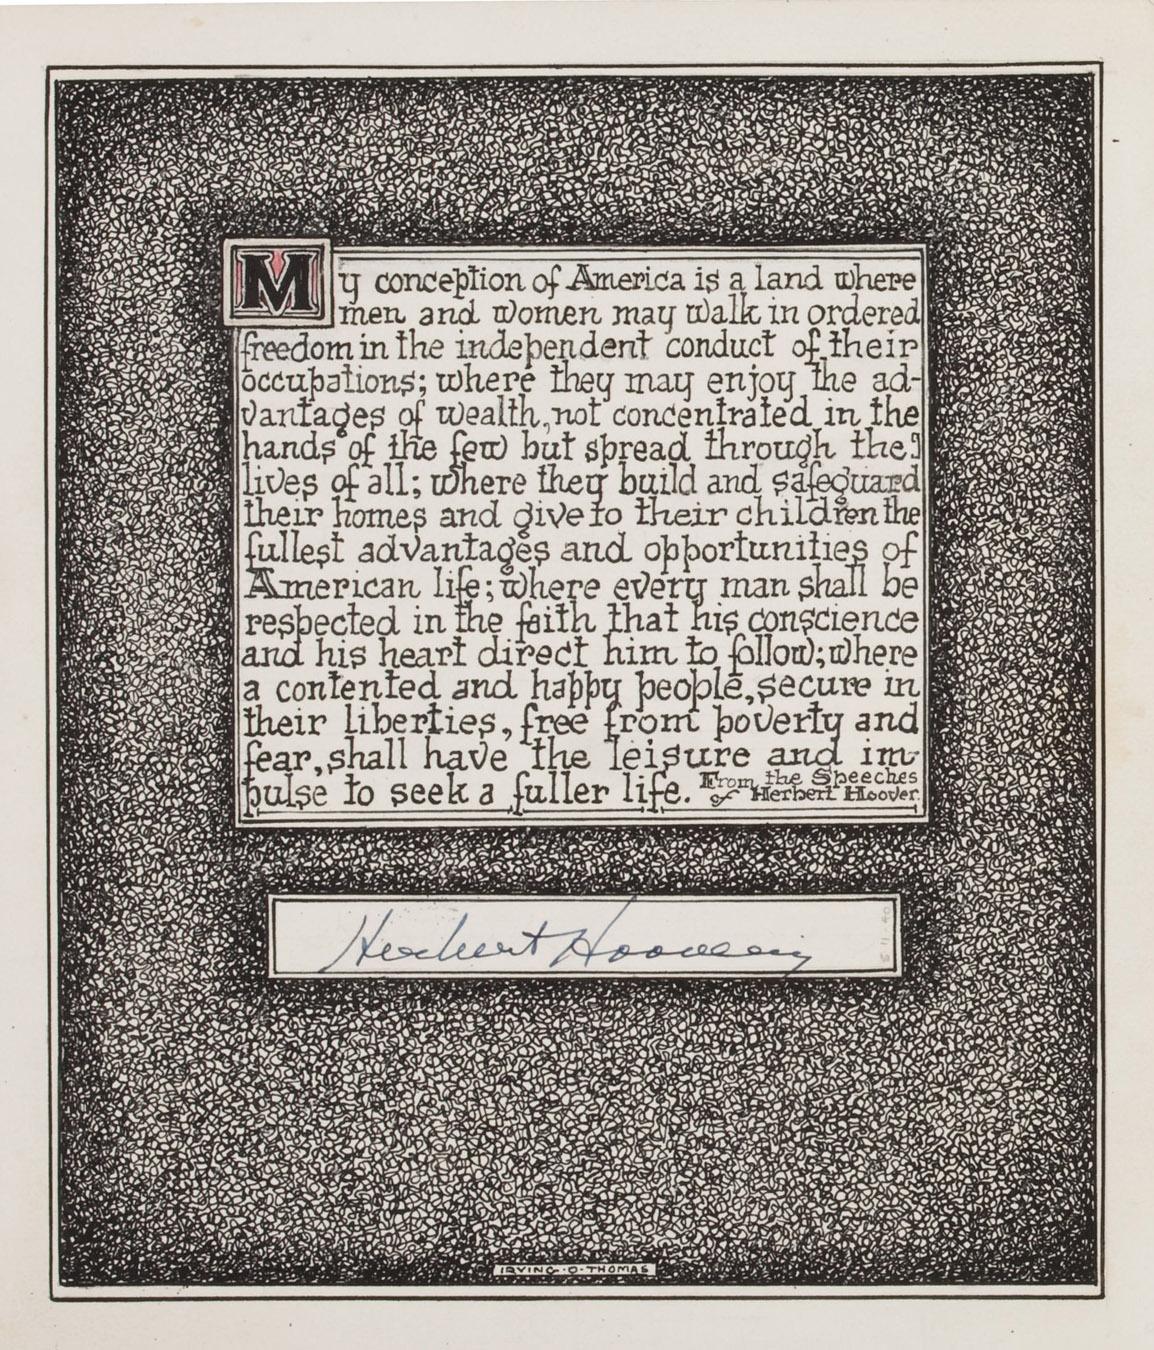 My conception of America is a land where
men and women may walk in ordered
freedom in the independent conduct of their
occupations; where they may enjoy the ad-
vantages of wealth, not concentrated in the
hands of the few but spread through the
lives of all; where they build and safeguard
their homes and give to their children the
fullest advantages and opportunities of
American life; where every man shall be
respected in the faith that his conscience
and his heart direct him to follow; where
a contented and happy people, secure in
their liberties, free from poverty and
fear, shall have the leisure and im-
pulse to seek a fuller life. From the Speeches
of Herbert Hoover.
Herbert Hoover
IRVING·O·THOMAS